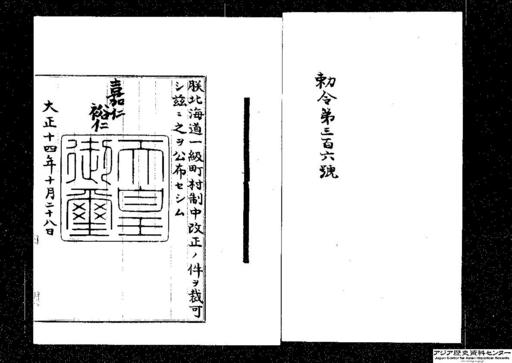 勅令第三百六號
朕北海道一級町村制中改正ノ件ヲ裁可
シ玆ニ之ヲ公布セシム
嘉仁
裕仁
天皇
御璽
大正十四年十月二十八日
アジア歴史資料センター
Japan Center for Asian Historical Records